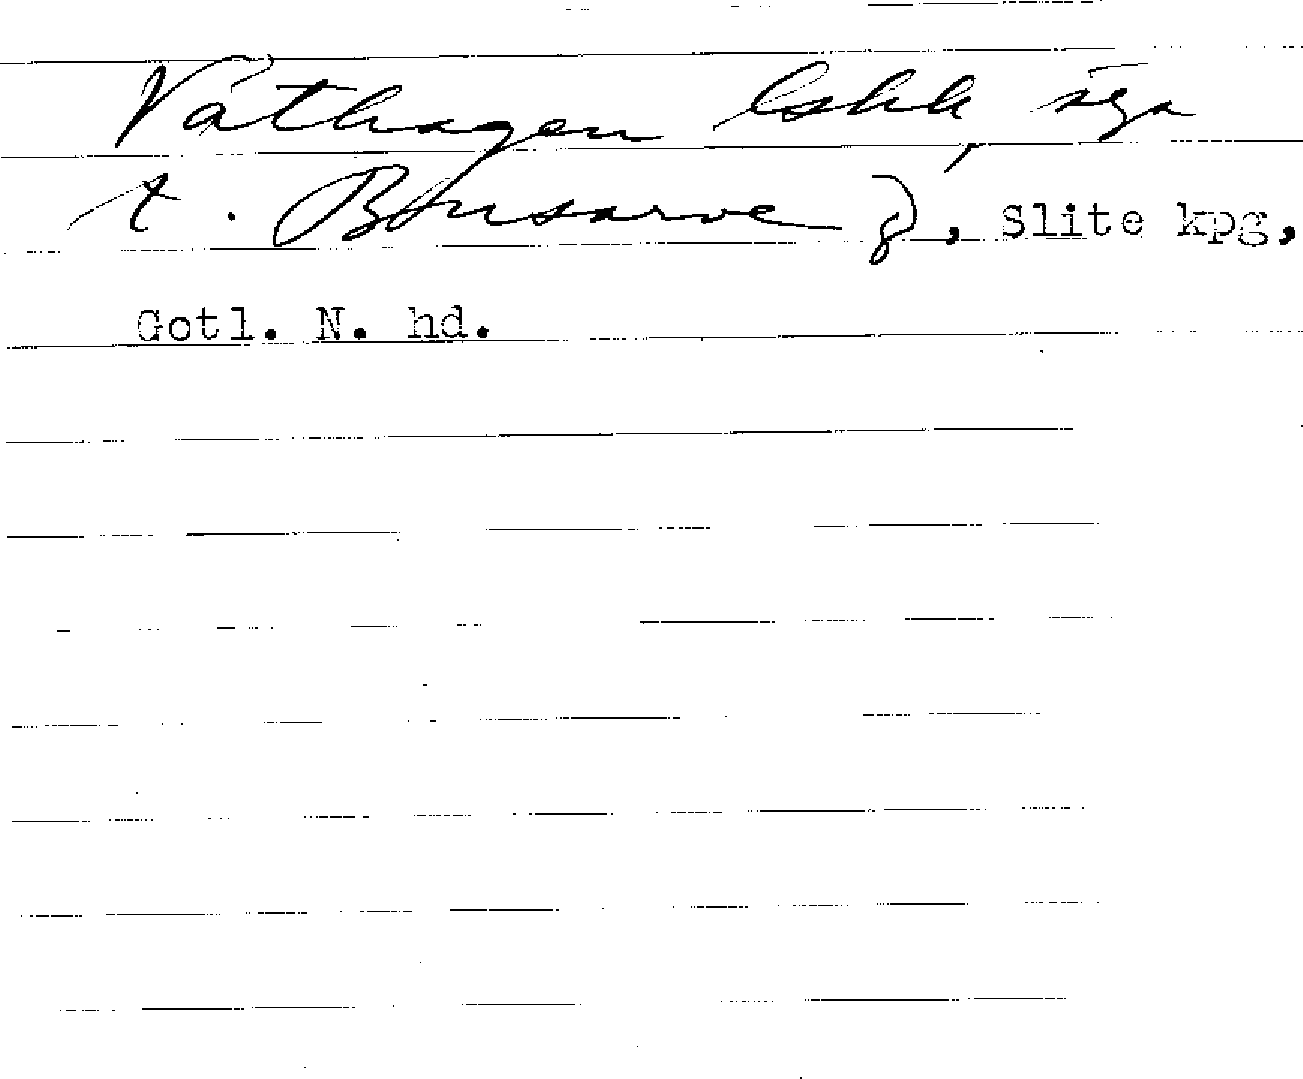 Våthagen lskh, äga
t. Bousarve g), Slite kpg,
Gotl. N. hd.